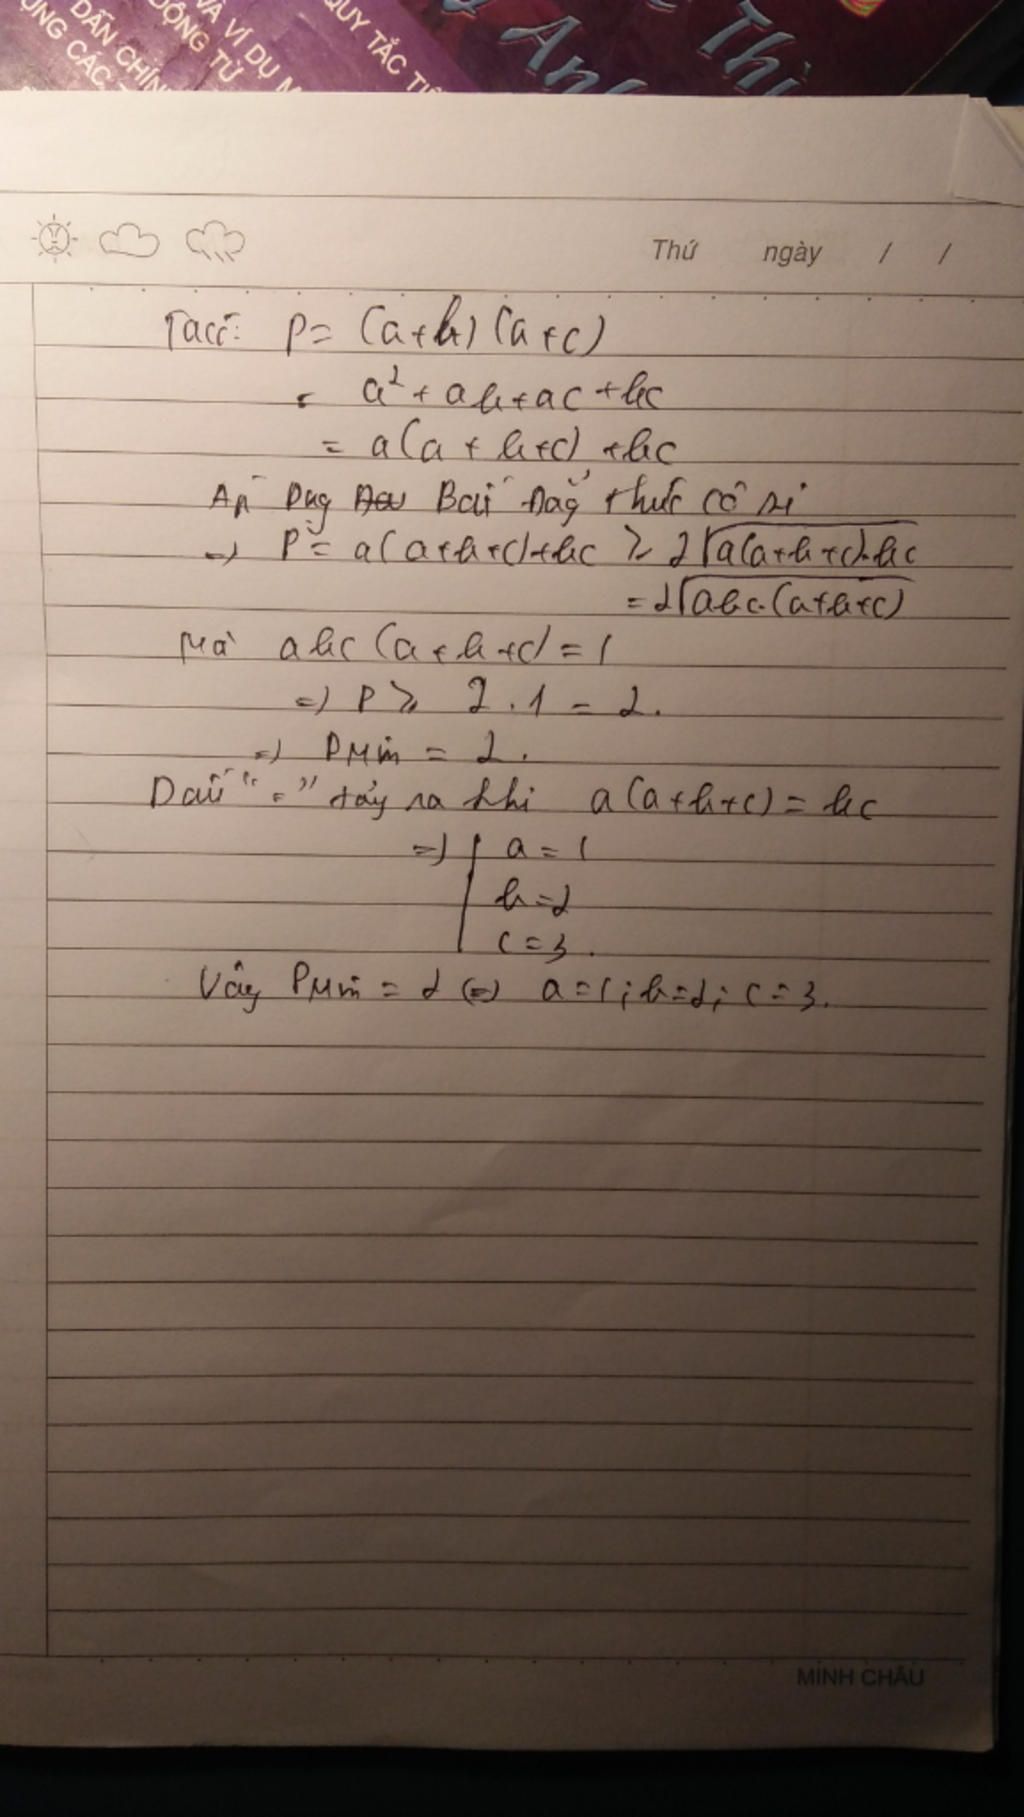 VÀ VÍ DỤ M
QUY TẮC TIẾ
DẪN CHÍN
ĐỘNG TỪ
ỤNG CÁC
Anh
Thì
Thứ ngày / /
Ta có: P = (a+b)(a+c)
= a² + ab + ac + bc
= a(a + b + c) + bc
Áp Dụg Bất Đẳg thức cô si
=> P = a(a+b+c)+bc ≥ 2√a(a+b+c).bc
= 2√abc.(a+b+c)
Mà abc(a+b+c) = 1
=> P ≥ 2.1 = 2.
=> PMin = 2.
Dấu "=" xảy ra khi a(a+b+c) = bc
=> a = 1
b = 2
c = 3.
Vậy PMin = 2 <=> a=1; b=2; c=3.
MINH CHÂU